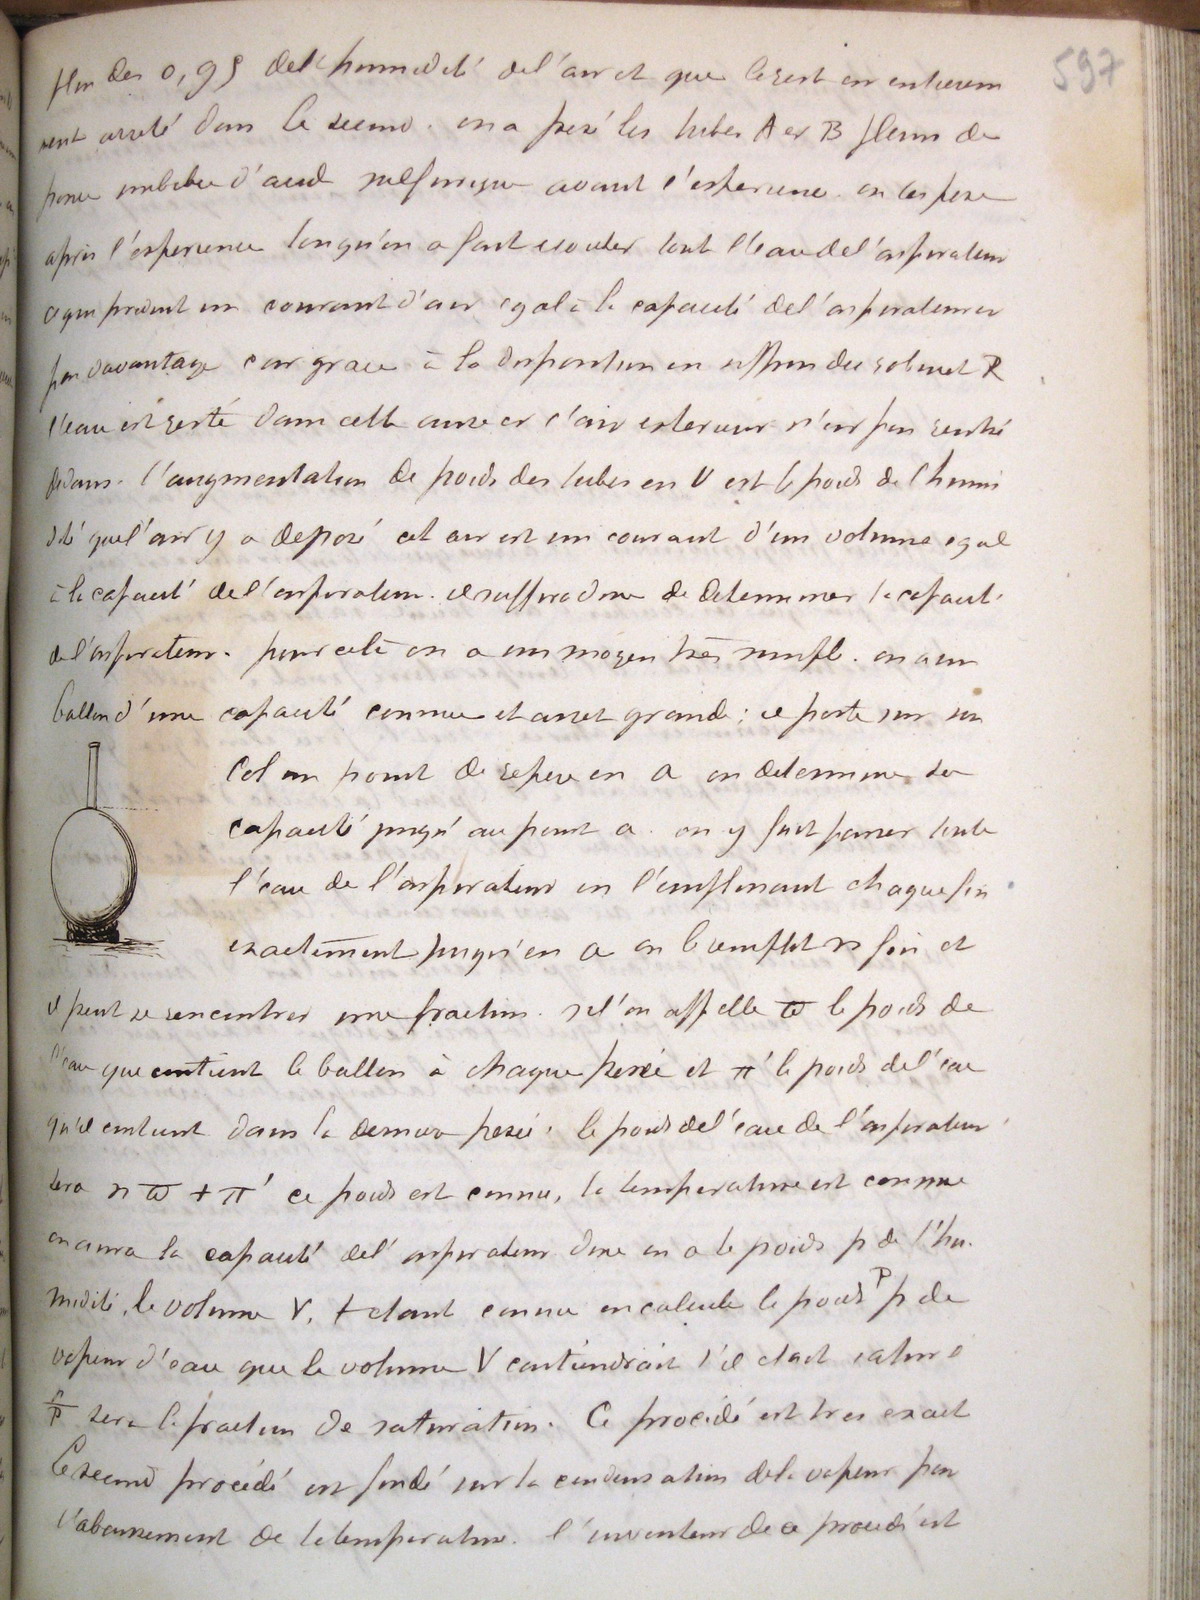 597
plus des 0,99 de l'humidité de l'air et que le reste en entierem
ment arreté dans le second. on a pesé les tubes A et B pleins de
ponce imbibée d'acide sulfurique avant l'experience. on les pese
apres l'experience lorsqu'on a fait ecouler tout l'eau de l'aspirateur
ce qui produit un courant d'air egal à la capacité de l'aspirateur et
pas davantage car grace à la disposition en siphon du robinet R
l'eau est resté dans cette anse et l'air exterieur n'est pas rentré
dedans. l'augmentation de poids des tubes en V est le poids de l'humi
dité que l'air y a deposé cet air est un courant d'un volume egal
à la capacité de l'aspirateur. il suffira donc de determiner la capacité
de l'aspirateur. pour cela on a un moyen très simple. on a un
ballon d'une capacité connue et assez grande; il porte sur son
col un point de repere en a on determine sa
capacité jusqu'au point a. on y fait passer toute
l'eau de l'aspirateur en l'emplissant chaque fois
exactement jusqu'en a on le remplit n fois et
il peut se rencontrer une fraction. si l'on appelle ϖ le poids de
l'eau que contient le ballon à chaque pesée et π' le poids de l'eau
qu'il contient dans la derniere pesée. le poids de l'eau de l'aspirateur
sera n ϖ + π' ce poids est connu, la temperature est connue
on aura la capacité de l'aspirateur donc on a le poids p de l'hu.
midité, le volume V, t etant connue on calcule le poids P p de
vapeur d'eau que le volume V contiendrait s'il etait saturé
p/P sera la fraction de saturation. Ce procédé est tres exact
Le second procédé est fondé sur la condensation de la vapeur par
l'abaissement de la temperature. l'inventeur de ce procédé est